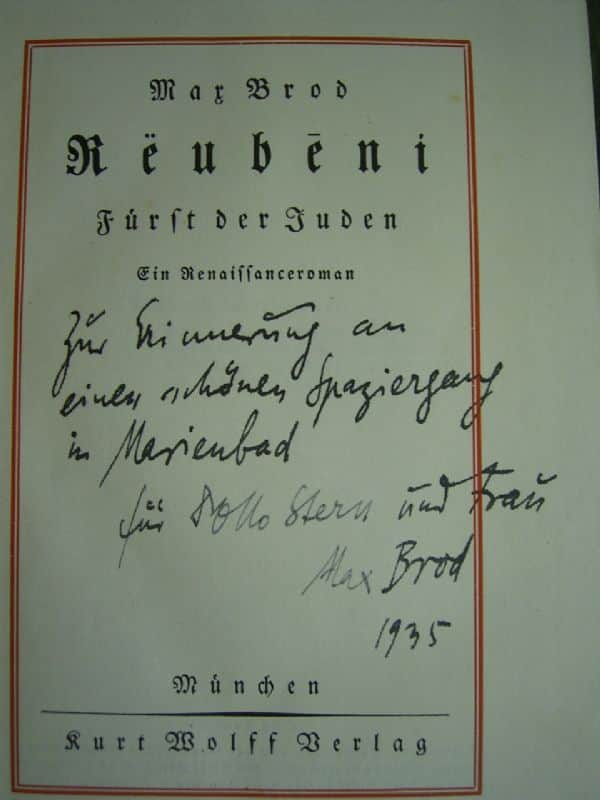 Max Brod
Rëubēni
Fürſt der Juden
Ein Renaiſſanceroman
Zur Erinnerung an
einen schönen Spaziergang
in Marienbad
für Otto Stern und Frau
Max Brod
1935
München
Kurt Wolff Verlag